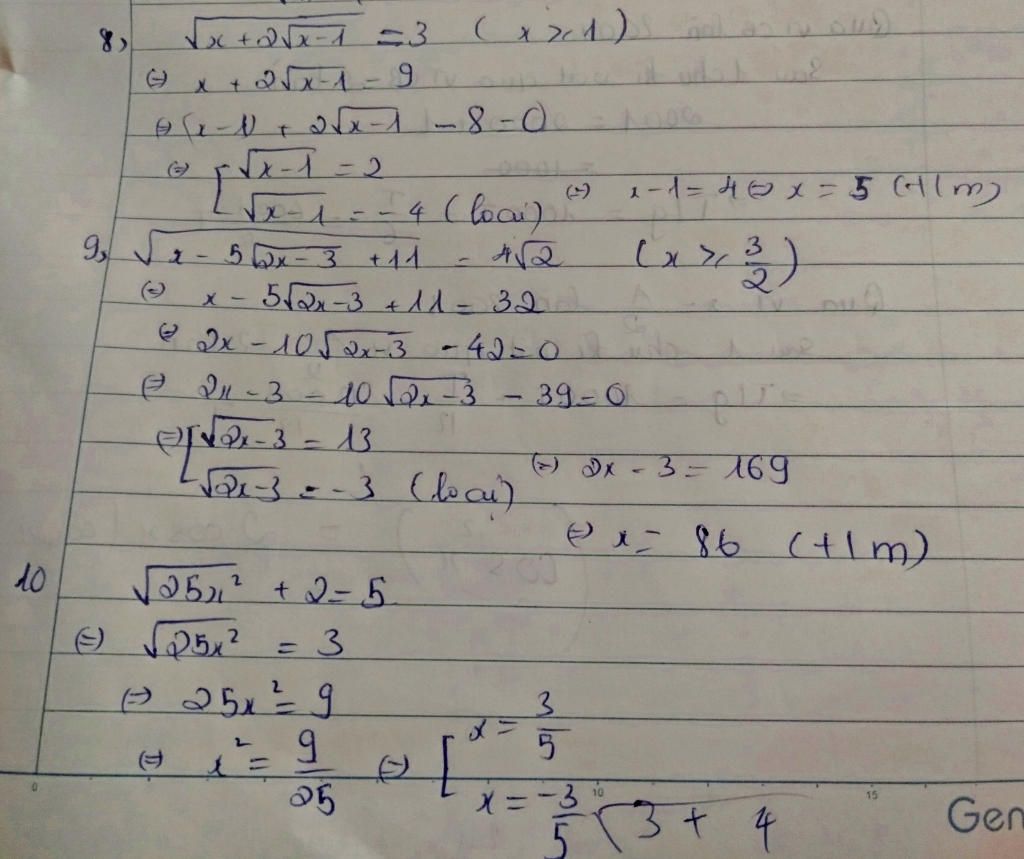 8, √(x + 2√(x-1)) = 3 ( x ≥ 1 )
⇔ x + 2√(x-1) = 9
⇔ (x-1) + 2√(x-1) - 8 = 0
⇔ [ √(x-1) = 2
√(x-1) = -4 (loại) ⇔ x-1 = 4 ⇔ x = 5 (t/m)
9, √(x - 5√(2x-3) + 11) = 4√2 ( x ≥ 3/2 )
⇔ x - 5√(2x-3) + 11 = 32
⇔ 2x - 10√(2x-3) - 42 = 0
⇔ 2x - 3 - 10√(2x-3) - 39 = 0
⇔ [ √(2x-3) = 13
√(2x-3) = -3 (loại) ⇔ 2x - 3 = 169
⇔ x = 86 (t/m)
10 √(25x²) + 2 = 5
⇔ √(25x²) = 3
⇔ 25x² = 9
⇔ x² = 9/25 ⇔ [ x = 3/5
x = -3/5
√(3 + 4
0 10 15 Gen